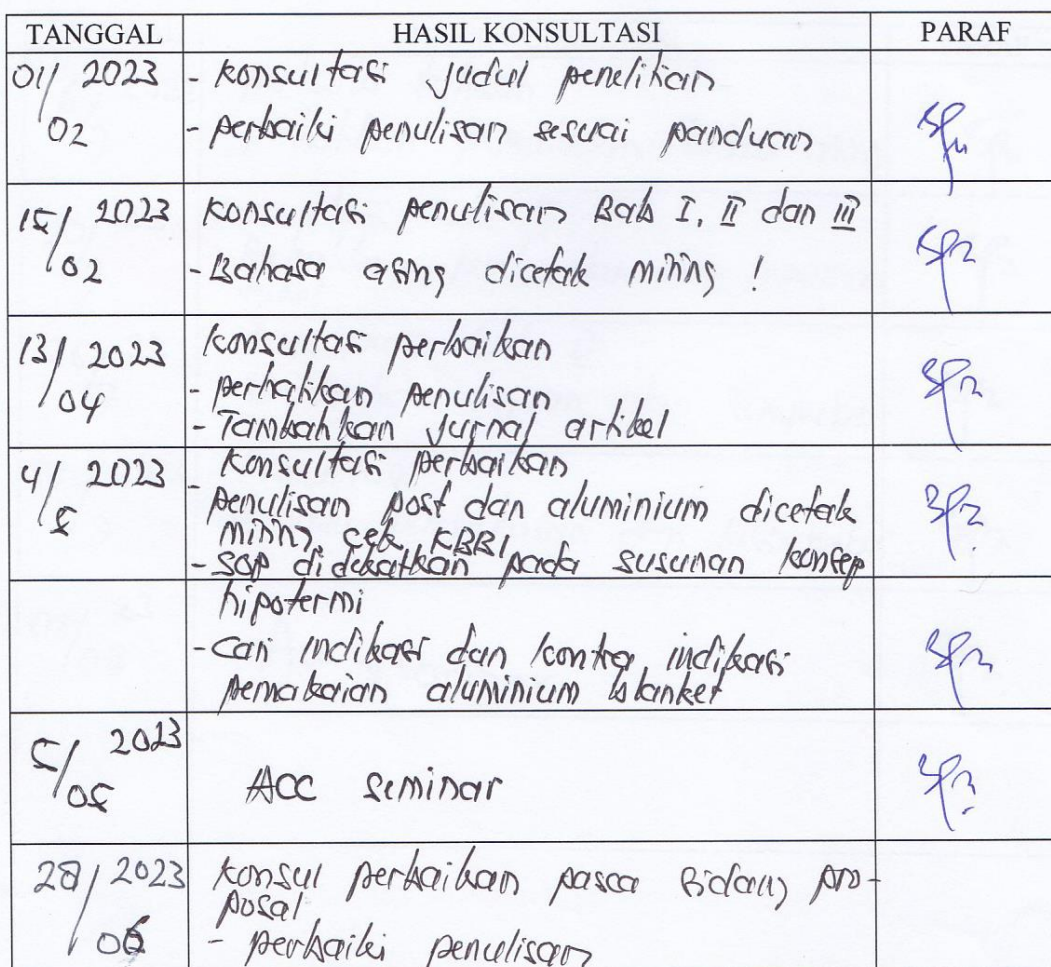 TANGGAL HASIL KONSULTASI PARAF
01/02 2023 - Konsultasi Judul penelitian
- perbaiki penulisan sesuai panduan
15/02 2023 Konsultasi penulisan Bab I, II dan III
- Bahasa asing dicetak miring !
13/04 2023 Konsultasi perbaikan
- perhatikan penulisan
- Tambahkan Jurnal artikel
4/5 2023 - Konsultasi perbaikan
penulisan post dan aluminium dicetak
miring, cek KBBI
- SOP didekatkan pada susunan konsep
hipotermi
- Cari indikasi dan kontra indikasi
pemakaian aluminium blanket
5/05 2023 ACC seminar
28/06 2023 Konsul perbaikan pasca sidang pro-
posal
- perbaiki penulisan